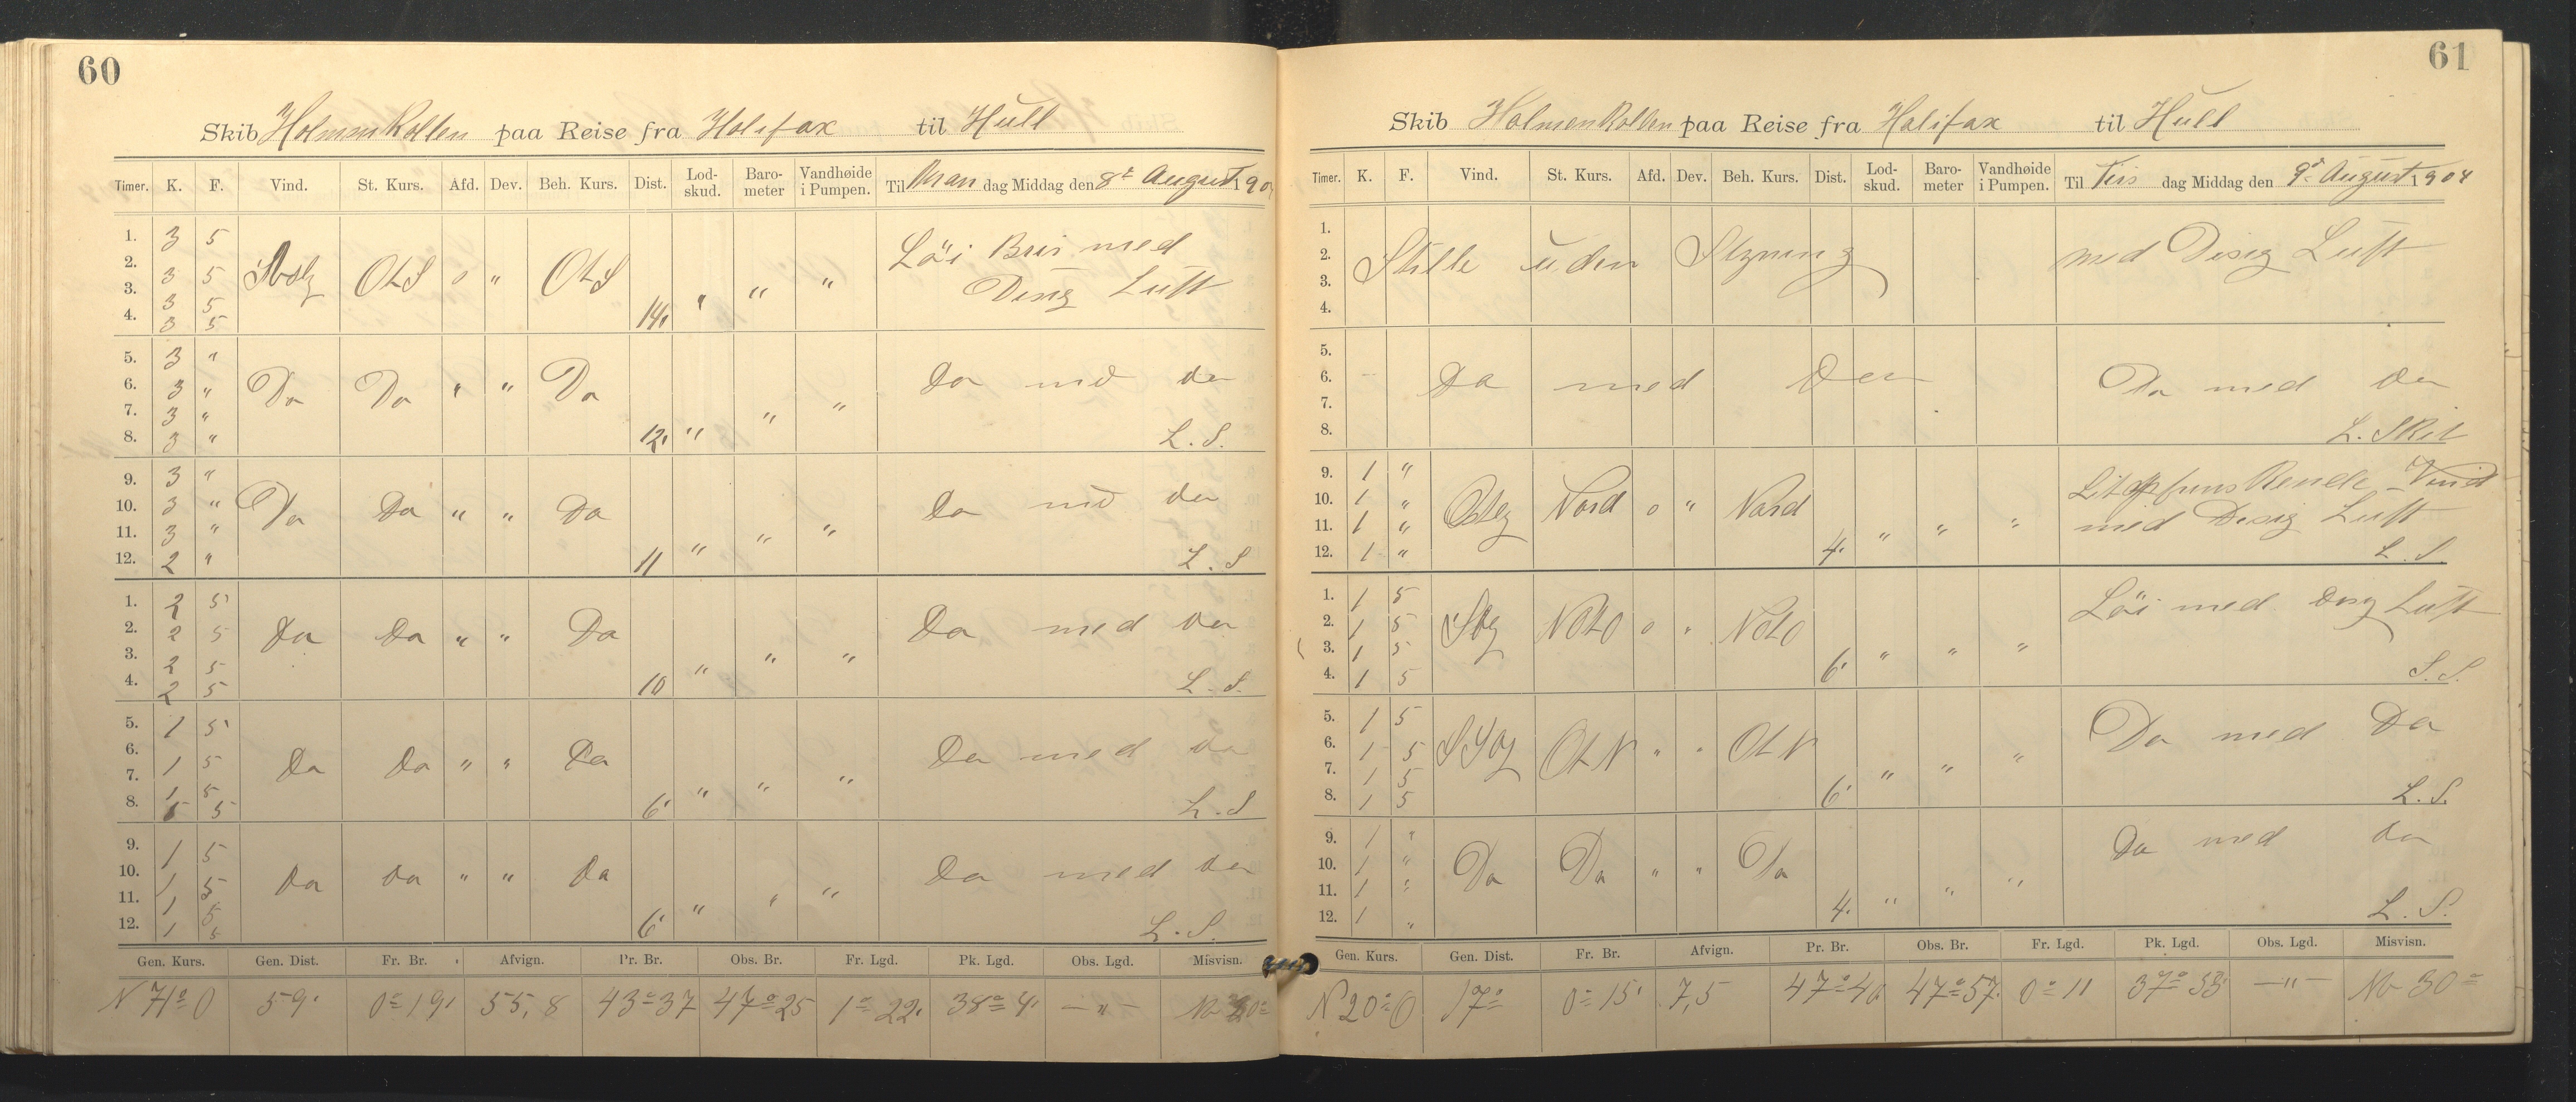 60
Skib Holmenkollen paa Reise fra Halifax til Hull
Timer. K. F. Vind. St. Kurs. Afd. Dev. Beh. Kurs. Dist. Lod-skud. Baro-meter Vandhøide i Pumpen. Til Man dag Middag den 8de August 190
1. 3 5
2. 3 5 OtS 0 " OtS " " " Löi Bris med
3. 3 5 Disig Luft
4. 3 5 14,
5. 3 "
6. 3 " Do Do " " Do Do med do
7. 3 " " "
8. 3 " 12, " L. S.
9. 3 "
10. 3 " Do Do " " Do Do med do
11. 3 " " " "
12. 2 " 11 L. S
1. 2 5
2. 2 5 Do Do " " Do Do med do
3. 2 5 " " "
4. 2 5 10 L. S.
5. 1 5
6. 1 5 Do Do " " Do Do med do
7. 1 5 " " "
8. 5 6' L. S
9. 1 5
10. 1 5 Do do " " Do Do med do
11. 1 5 " " "
12. 1 5 6' L. S.
Gen. Kurs. Gen. Dist. Fr. Br. Afvign. Pr. Br. Obs. Br. Fr. Lgd. Pk. Lgd. Obs. Lgd. Misvisn.
N 71° O 59' 0° 19' 55,8 43° 37 47° 25 1° 22' 38° 4' — " —
61
Skib Holmenkollen paa Reise fra Halifax til Hull
Timer. K. F. Vind. St. Kurs. Afd. Dev. Beh. Kurs. Dist. Lod-skud. Baro-meter Vandhøide i Pumpen. Til Tirs dag Middag den 9de August 1904
1.
2. Stille uden Styning med Disig Luft
3.
4.
5.
6. Do med Do Do med Do
7.
8. L. Skit
9. 1 " Vind
10. 1 " Ostlig Nord 0 " Nord
11. 1 " " " " med Disig Luft
12. 1 " 4. L. S.
1. 1 5 Löi med Disig Luft
2. 1 5 NOtO 0 " NOtO
3. 1 5 " " "
4. 1 5 6' S. S.
5. 1 5 Do med Do
6. 1 5 OtN " " OtN
7. 1 5 " " "
8. 1 5 6' L. S.
9. 1 " Do med do
10. 1 " Do Do " " Do
11. 1 " " " "
12. 1 " 4. L. S.
Gen. Kurs. Gen. Dist. Fr. Br. Afvign. Pr. Br. Obs. Br. Fr. Lgd. Pk. Lgd. Obs. Lgd. Misvisn.
N 20° O 0° 15' 7,5 47° 40 47° 57' 0° 11 37° 53' — " — 30°